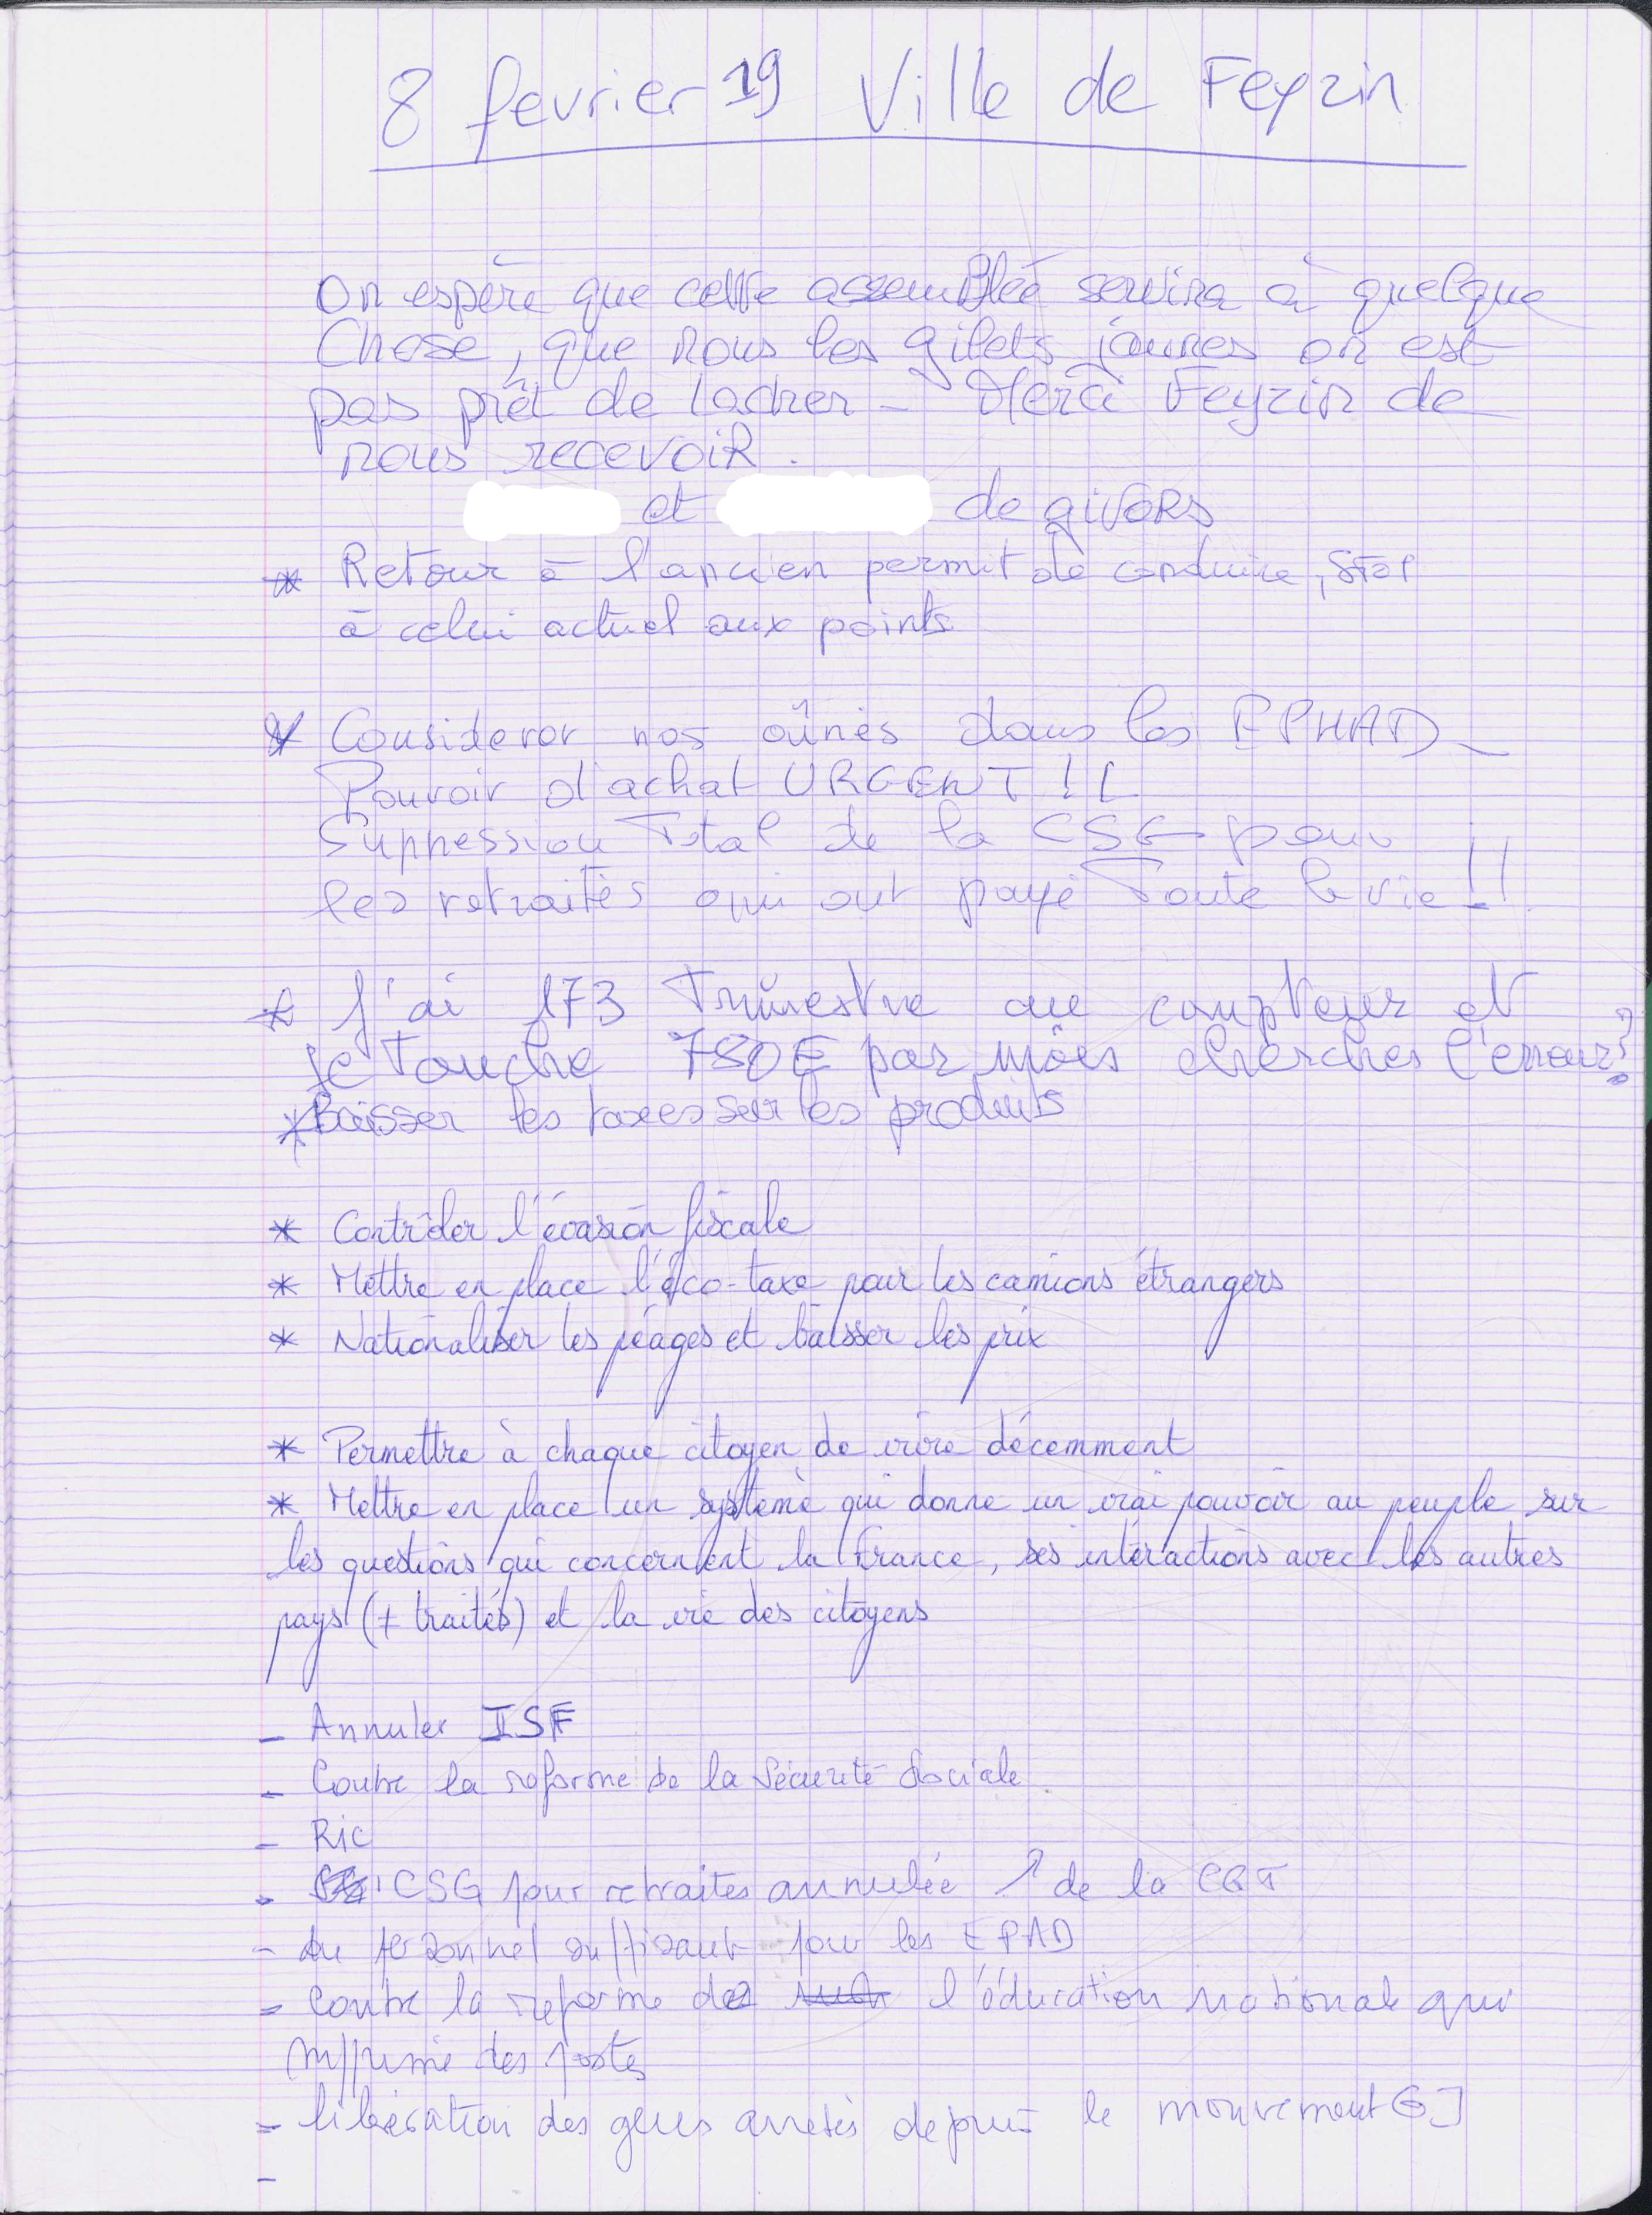 8 fevrier 19 Ville de Feyzin
On espère que cette assemblée servira à quelque
Chose, que nous les gilets jaunes on est
pas prêt de lacher - Merci Feyzin de
nous recevoir.
et de givors
* Retour à l'ancien permit de conduire, STOP
à celui actuel aux points
* Considerer nos aînés dans les EPHAD -
Pouvoir d'achat URGENT !!
Suppression Total de la CSG pour
les retraités qui ont payé Toute la vie !!
* J'ai 173 Trimestre au compteur et
je Touche 780€ par mois cherchez l'erreur ??
* Baisser les taxes sur les produits
* Contrôler l'évasion fiscale
* Mettre en place l'éco-taxe pour les camions étrangers
* Nationaliser les péages et baisser les prix
* Permettre à chaque citoyen de vivre décemment
* Mettre en place un système qui donne un vrai pouvoir au peuple sur
les questions qui concernent la France, ses intéractions avec les autres
pays (+ traités) et la vie des citoyens
- Annuler ISF
- Contre la reforme de la Sécurité Sociale
- RIC
- CSG pour retraites annulée ↗ de la
- du personnel suffisant pour les EPAD
- Contre la reforme de l'éducation national qui
supprime des postes
- libération des gens arretés depuis le mouvement GJ
-